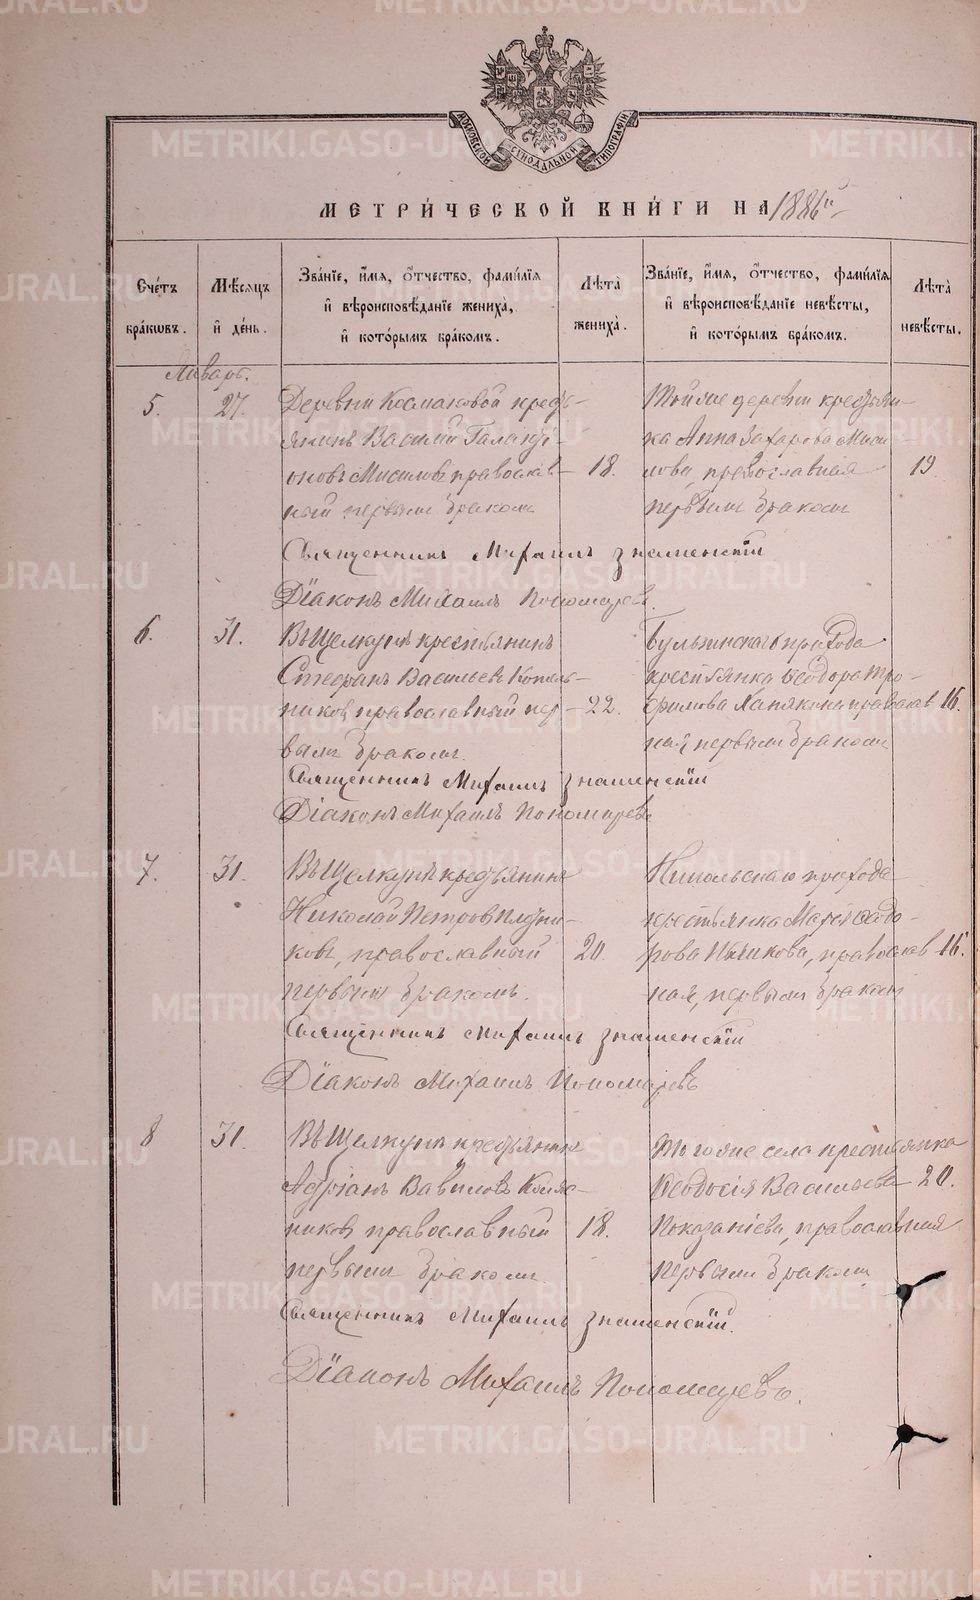 METRIKI.GASO-URAL.RU
МОСКОВСКОЙ СУНОДАЛЬНОЙ ТИПОГРАФІИ
МЕТРИ́ЧЕСКОЙ КНИ́ГИ НА 1886й
Сче́тъ бра́кѡвъ.
Мѣ́сѧцъ и҆ де́нь.
Зва́нїе, и҆́мѧ, ѻ҆́тчество, фами́лїѧ
и҆ вѣроисповѣ́данїе жениха̀,
и҆ кото́рымъ бра́комъ.
Лѣта̀ жениха̀.
Зва́нїе, и҆́мѧ, ѻ҆́тчество, фами́лїѧ
и҆ вѣроисповѣ́данїе невѣ́сты,
и҆ кото́рымъ бра́комъ.
Лѣта̀ невѣ́сты.
Январь.
5. 27.
Деревни Космаковой кресть-
янинъ Василій Галакті-
оновъ Мисиловъ православ-
ный первымъ бракомъ
18.
Тойже деревни крестьян-
ка Анна Захарова Миси-
лова, православная
первымъ бракомъ
19
Священникъ Михаилъ Знаменскій
Діаконъ Михаилъ Пономаревъ.
6. 31.
Въ Щелкунѣ крестьянинъ
Стефанъ Васильевъ
православный пер-
вымъ бракомъ.
22.
прихода
крестьянка Ѳеодора Тро-
фимова православ
ная, первымъ бракомъ
16.
Священникъ Михаилъ Знаменскій
Діаконъ Михаилъ Пономаревъ
7. 31.
Въ Щелкунѣ крестьянинъ
Николай Петровъ Плотни-
ковъ, православный
первымъ бракомъ.
20.
Никольскаго прихода
крестьянка Марія Ѳедо-
рова православ
ная, первымъ бракомъ
16.
Священникъ Михаилъ Знаменскій
Діаконъ Михаилъ Пономаревъ
8 31.
Въ Щелкунѣ крестьянинъ
Адріанъ Вавиловъ
православный
первымъ бракомъ
18.
Тогоже села крестьянка
Ѳеодосія Васильева
православная
первымъ бракомъ
20.
Священникъ Михаилъ Знаменскій.
Діаконъ Михаилъ Пономаревъ.